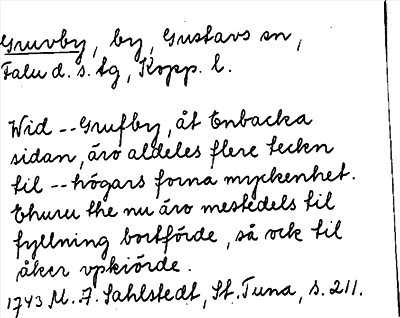 Gruvby, by, Gustavs sn,
Falu d. s. tg, Kopp. l.
Wid -- Grufby, åt Enbacka
sidan, äro aldeles flere teckn
til -- högars forna myckenhet.
Ehuru the nu äro mestedels til
fyllning bortförde, så ock til
åker vpkiörde.
1743 M. A. Sahlstedt, St. Tuna, s. 211.